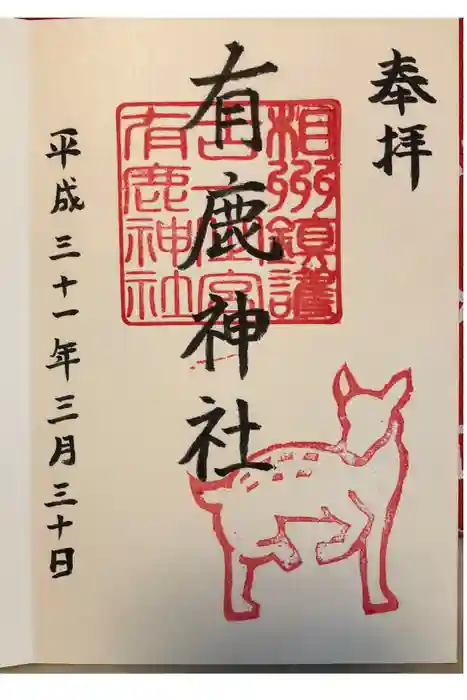 奉拝
有鹿神社
平成三十一年三月三十日
相州鎮護
有鹿神社